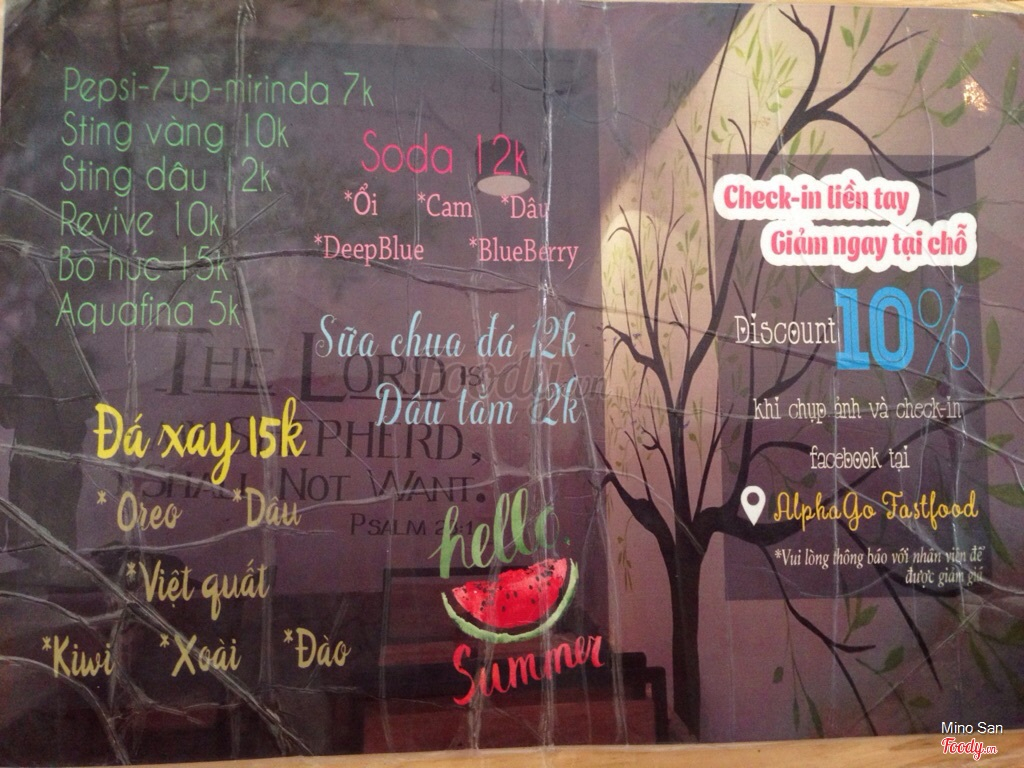 Pepsi-7up-mirinda 7k
Sting vàng 10k
Sting dâu 12k
Revive 10k
Bò húc 15k
Aquafina 5k
Soda 12k
*Ổi *Cam *Dâu
*DeepBlue *BlueBerry
Sữa chua đá 12k
Dâu tằm 12k
THE LORD IS
SHEPHERD,
SHALL NOT WANT.
PSALM 23:1
Đá xay 15k
*Oreo *Dâu
*Việt quất
*Kiwi *Xoài *Đào
hello
Summer
Check-in liền tay
Giảm ngay tại chỗ
Discount 10%
khi chụp ảnh và check-in
facebook tại
AlphaGo Fastfood
*Vui lòng thông báo với nhân viên để
được giảm giá
Foody.vn
Mino San
Foody.vn